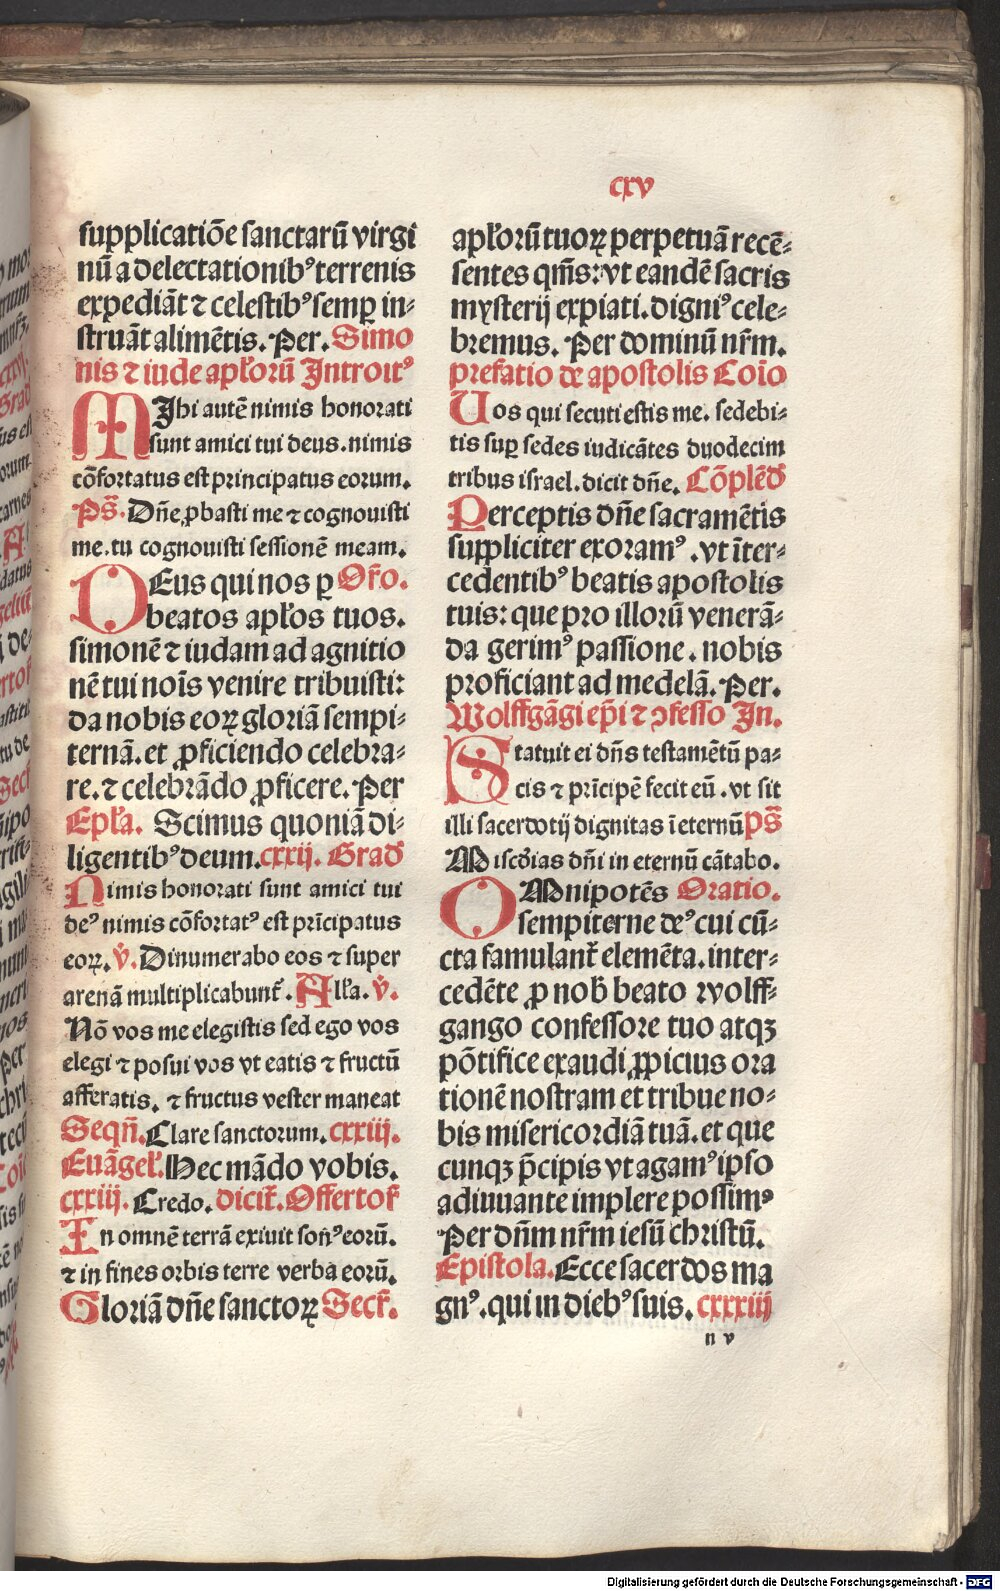 cxv
supplicatiōe sanctarū virgi
nū a delectationibꝰ terrenis
expediāt ⁊ celestibꝰ semꝑ in⸗
struāt alimētis. Per. Simo
nis ⁊ iude apl'orū Introitꝰ
MIhi autē nimis honorati
sunt amici tui deus. nimis
cōfortatus est principatus eorum.
Ps̄. Dn̄e ꝓbasti me ⁊ cognouisti
me. tu cognouisti sessionē meam.
DEus qui nos ꝑ Or̄o.
beatos apl'os tuos.
simonē ⁊ iudam ad agnitio
nē tui noīs venire tribuisti:
da nobis eoꝝ gloriā sempi⸗
ternā. et ꝓficiendo celebra⸗
re. ⁊ celebrādo ꝓficere. Per
Epl'a. Scimus quoniā di⸗
ligentibꝰ deum. cxxij. Grad'
Nimis honorati sunt amici tui
deꝰ nimis cōfortatꝰ est prīcipatus
eoꝝ. v̇. Dinumerabo eos ⁊ super
arenā multiplicabunt'. All'a. v̇.
Nō vos me elegistis sed ego vos
elegi ⁊ posui vos vt eatis ⁊ fructū
afferatis. ⁊ fructus vester maneat
Seqn̄. Clare sanctorum. cxxiij.
Euāgel'. Hec mādo vobis.
cxxiij. Credo. dicit'. Offertor'
In omnē terrā exiuit sonꝰ eorū.
⁊ in fines orbis terre verba eorū.
Gloriā dn̄e sanctoꝝ Secr'.
apl'orū tuoꝝ perpetuā recē⸗
sentes qm̄s: vt eandē sacris
mysterij expiati. digniꝰ cele⸗
bremus. Per dominū nr̄m.
prefatio de apostolis Coīo
Uos qui secuti estis me. sedebi⸗
tis suꝑ sedes iudicātes duodecim
tribus israel. dicit dn̄e. Cōplēd'
Perceptis dn̄e sacramētis
suppliciter exoramꝰ. vt īter⸗
cedentibꝰ beatis apostolis
tuis: que pro illorū venerā⸗
da gerimꝰ passione. nobis
proficiant ad medelā. Per.
Wolffgāgi ep̄i ⁊ ꝯfesso In.
Statuit ei dn̄s testamētū pa⸗
cis ⁊ prīcipē fecit eū. vt sit
illi sacerdotij dignitas ī eternū ps̄
Misc̄dias dn̄i in eternū cātabo.
OMnipotēs Oratio.
sempiterne deꝰ cui cū⸗
cta famulant' elemēta. inter⸗
cedēte ꝓ nob' beato wolff⸗
gango confessore tuo atqꝫ
pōtifice exaudi ꝓpicius ora
tionē nostram et tribue no⸗
bis misericordiā tuā. et que
cunqꝫ p̄cipis vt agamꝰ ipso
adiuuante implere possimꝰ
Per dn̄m nr̄m iesū christū.
Epistola. Ecce sacerdos ma
gnꝰ. qui in diebꝰ suis. cxxxiij
n v
Digitalisierung gefördert durch die Deutsche Forschungsgemeinschaft - DFG